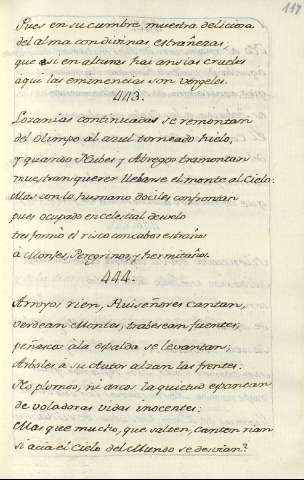 117
Pues en su cumbre, muestra deliciosa
del alma con divinas estrañezas
que si en alturas hai ansias crueles
aqui las eminencias son vergeles.
443.
Lozanias continuadas se remontan
del Olimpo al azul torneado hielo,
y quando Nubes y Abregos tramontan
muestran querer llebarse el monte al Cielo:
Mas con lo humano dociles confrontan
pues ocupado en celestial desvelo
tres formò el risco con cabos estraños
à Monjes, Peregrinos, y hermitaños.
444.
Arroyos rien, Ruiseñores cantan,
verdean Montes, trabesean fuentes,
peñascos a la espalda se levantan;
Arboles à su Autor alzan las frentes:
No plomos, ni arcos la quietud espantan
de voladoras vidas inocentes:
Mas que mucho, que salten, canten, rian
si acia el Cielo del Mundo se desvian?